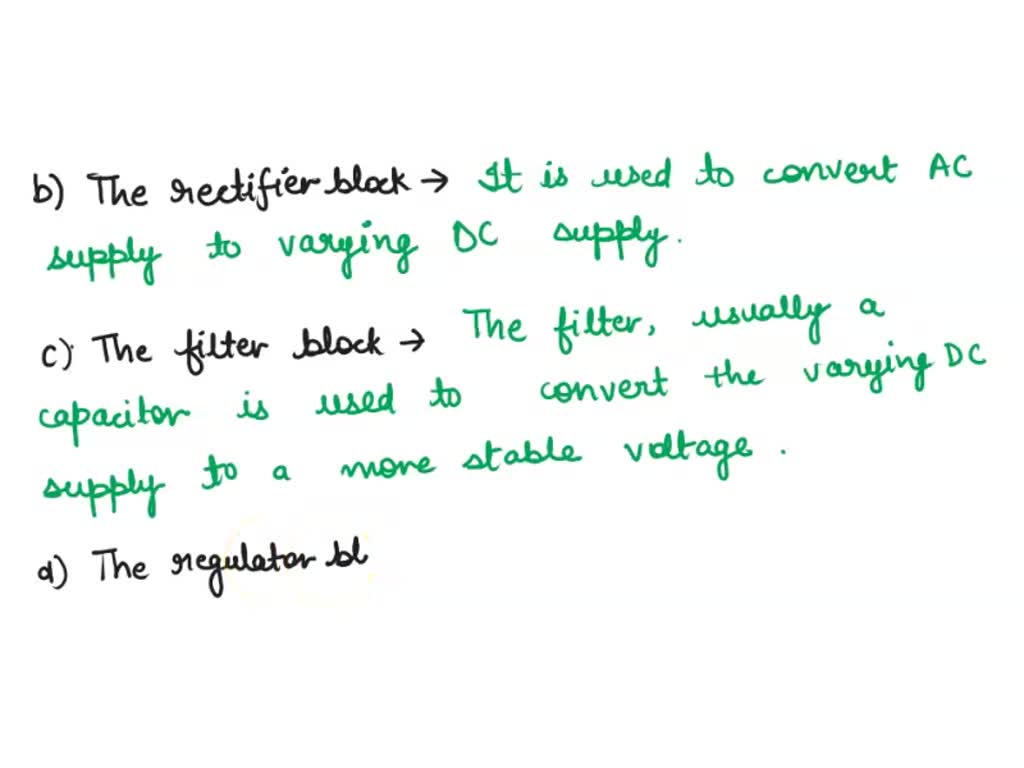 b) The rectifier block → It is used to convert AC
supply to varying DC supply.
c) The filter block → The filter, usually a
capacitor is used to convert the varying DC
supply to a more stable voltage.
d) The regulator bl